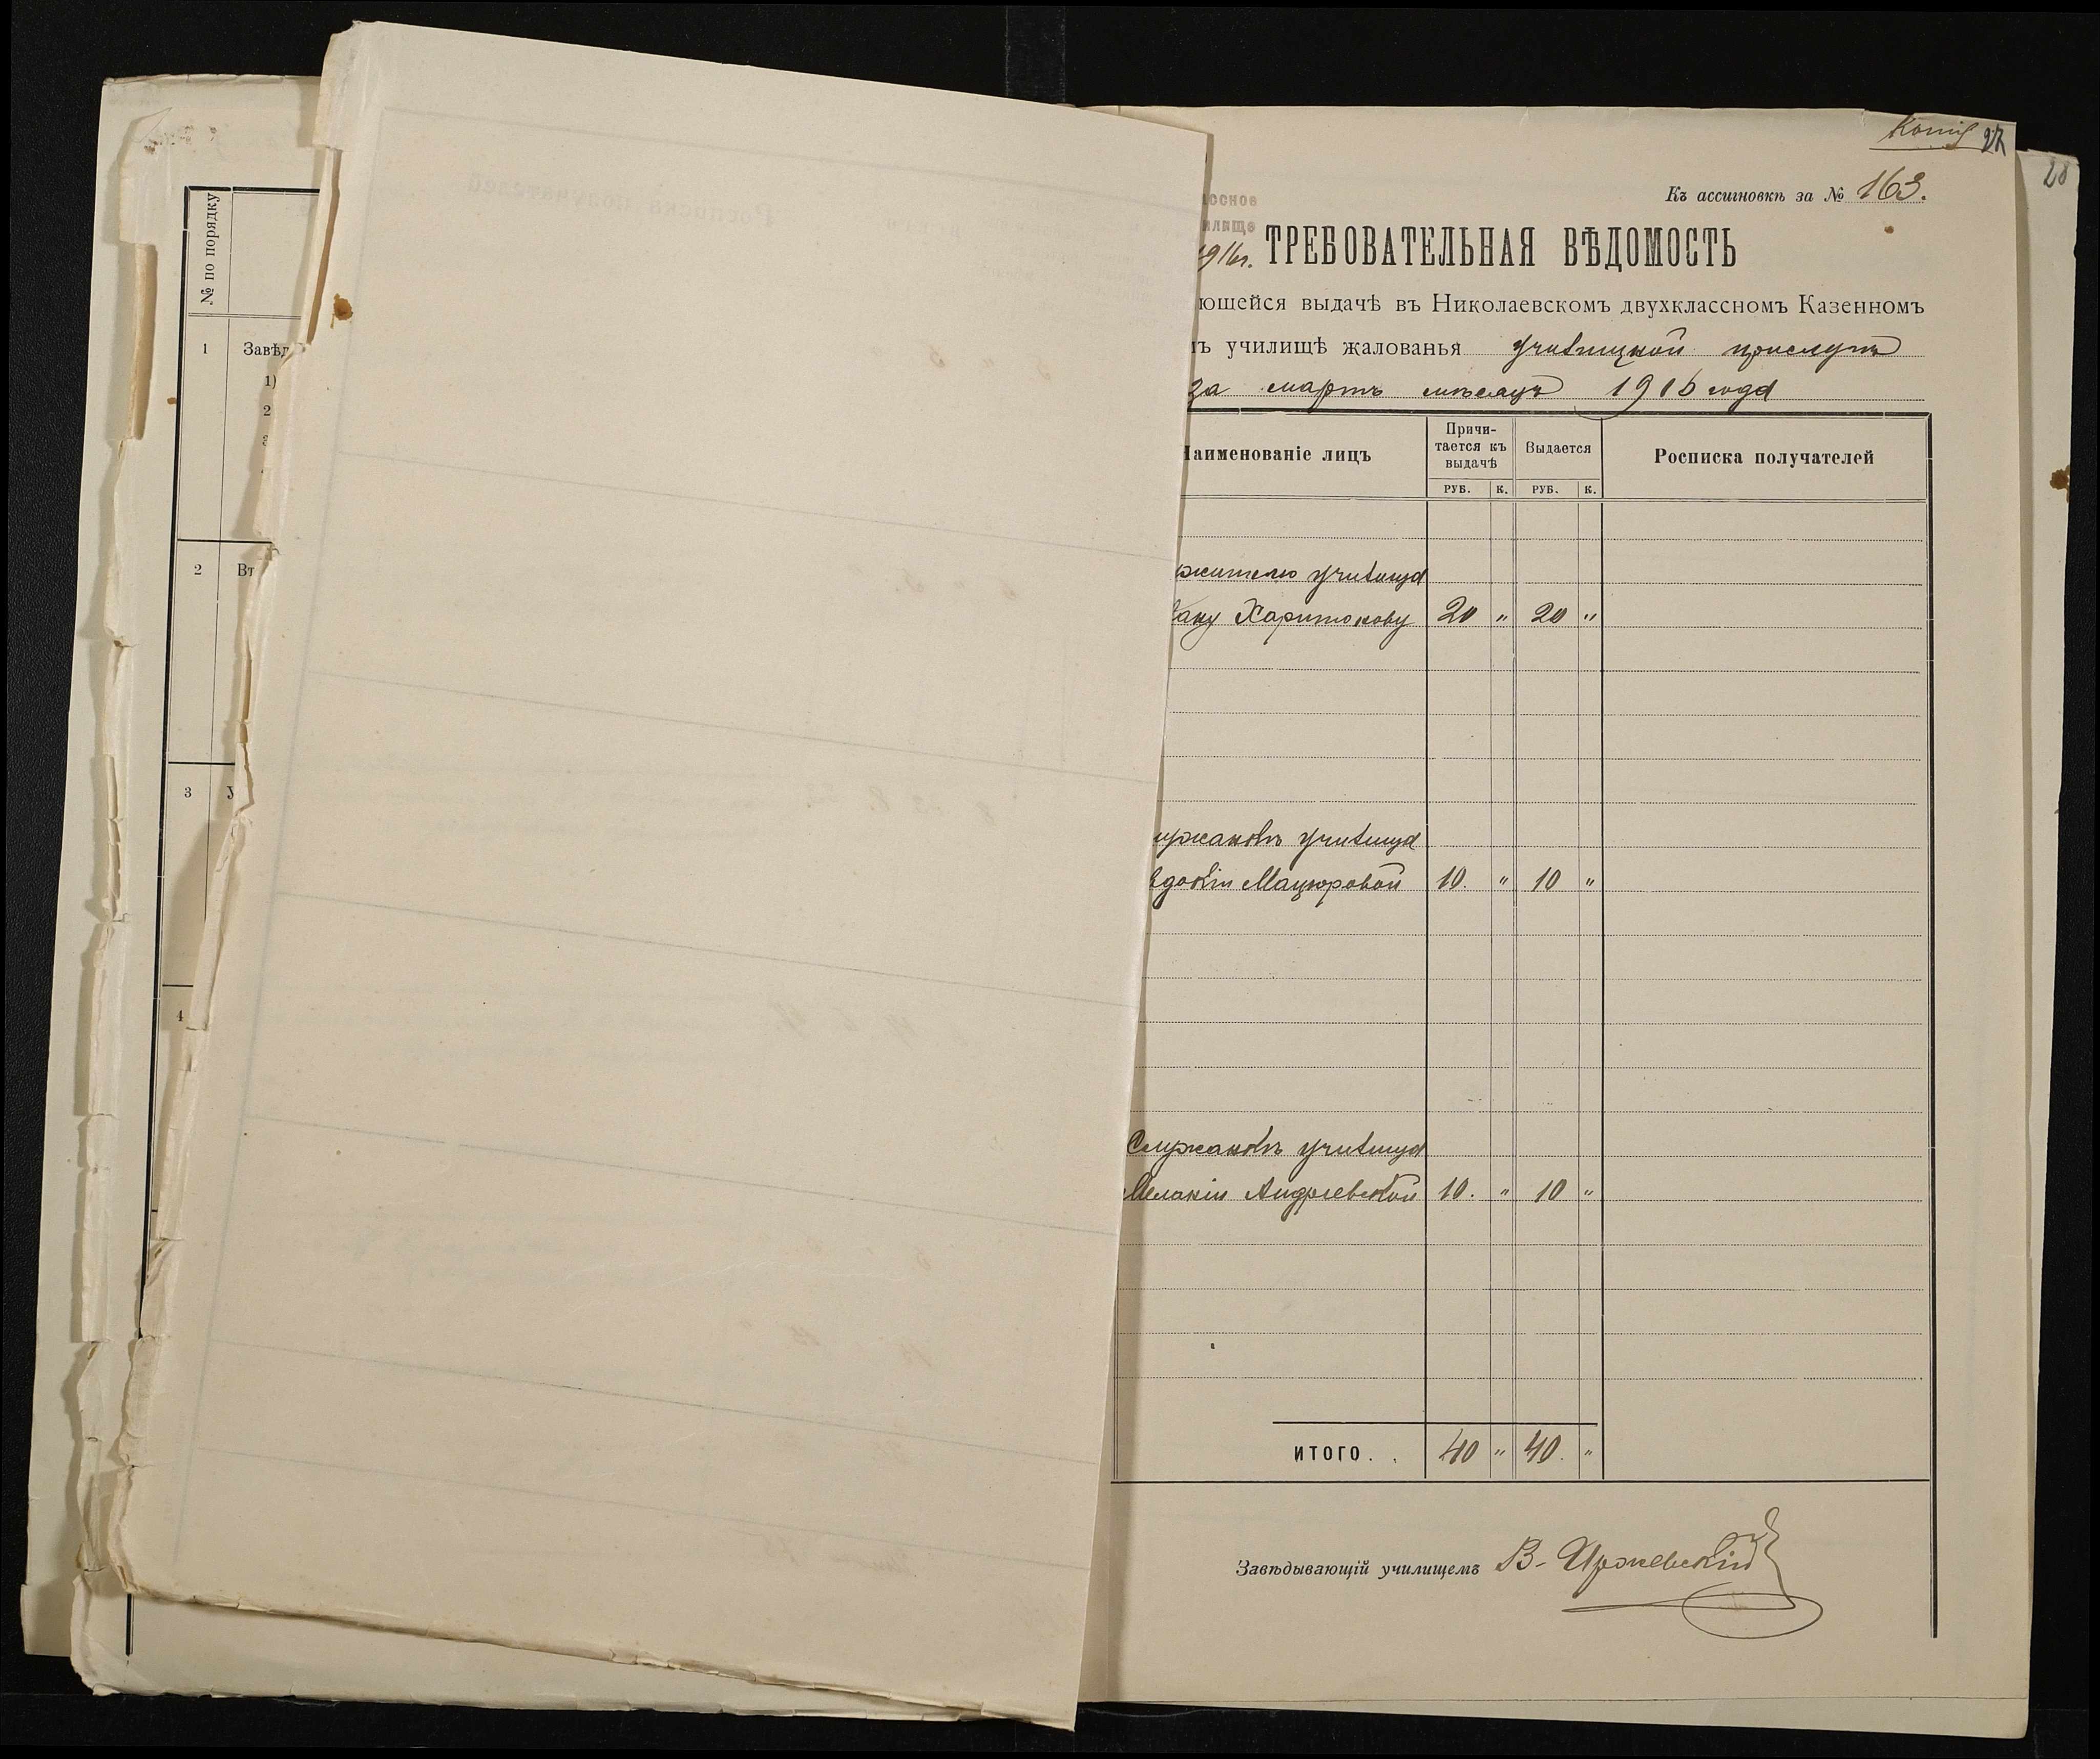 № по порядку
1 Завѣд
1)
2
3
2 Вт
3 У
4
Копія 27
28
Къ ассигновкѣ за № 163.
оссное
илище
916г. ТРЕБОВАТЕЛЬНАЯ ВѢДОМОСТЬ
ющейся выдачѣ въ Николаевскомъ двухклассномъ Казенномъ
мъ училищѣ жалованья училищной прислугѣ
за мартъ мѣсяцъ 1916 года
Наименованіе лицъ
Причи-
тается къ
выдачѣ
Выдается
Росписка получателей
РУБ. К. РУБ. К.
жителю училища
вану Харитонову 20 " 20 "
ужанкѣ училища
вдокіи Мацюровой 10. " 10 "
Служанкѣ училища
Меланіи Андріевской 10. " 10 "
ИТОГО. . 40 " 40. "
Завѣдывающій училищемъ В. Яржевскій